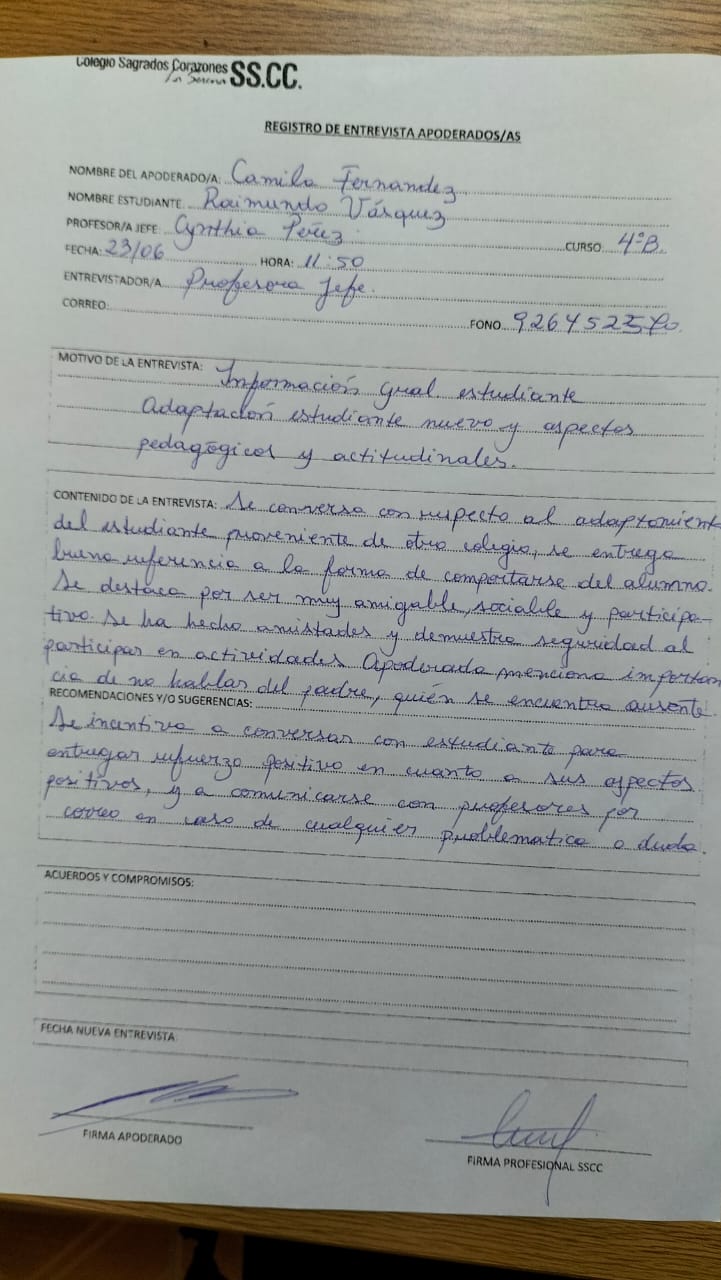 Colegio Sagrados Corazones SS.CC.
La Serena
REGISTRO DE ENTREVISTA APODERADOS/AS
NOMBRE DEL APODERADO/A: Camila Fernandez
NOMBRE ESTUDIANTE: Raimundo Vásquez
PROFESOR/A JEFE: Cynthia Pérez CURSO 4°B.
FECHA: 23/06 HORA: 11:50
ENTREVISTADOR/A Profesora Jefe.
CORREO: FONO
MOTIVO DE LA ENTREVISTA: Información gral estudiante
Adaptación estudiante nuevo y aspectos
pedagógicos y actitudinales.
CONTENIDO DE LA ENTREVISTA: Se conversa con respecto al adaptamient
del estudiante proveniente de otro colegio, se entrega
buena referencia a la forma de comportarse del alumno.
Se destaca por ser muy amigable, sociable y participa-
tivo. Se ha hecho amistades y demuestra seguridad al
participar en actividades Apoderada menciona importan
cia de no hablar del padre, quién se encuentra ausente.
RECOMENDACIONES Y/O SUGERENCIAS:
Se incentiva a conversar con estudiante para
entregar refuerzo positivo en cuanto a sus aspectos
positivos, y a comunicarse con profesores por
correo en caso de cualquier problematica o duda.
ACUERDOS Y COMPROMISOS:
FECHA NUEVA ENTREVISTA
FIRMA APODERADO
FIRMA PROFESIONAL SSCC